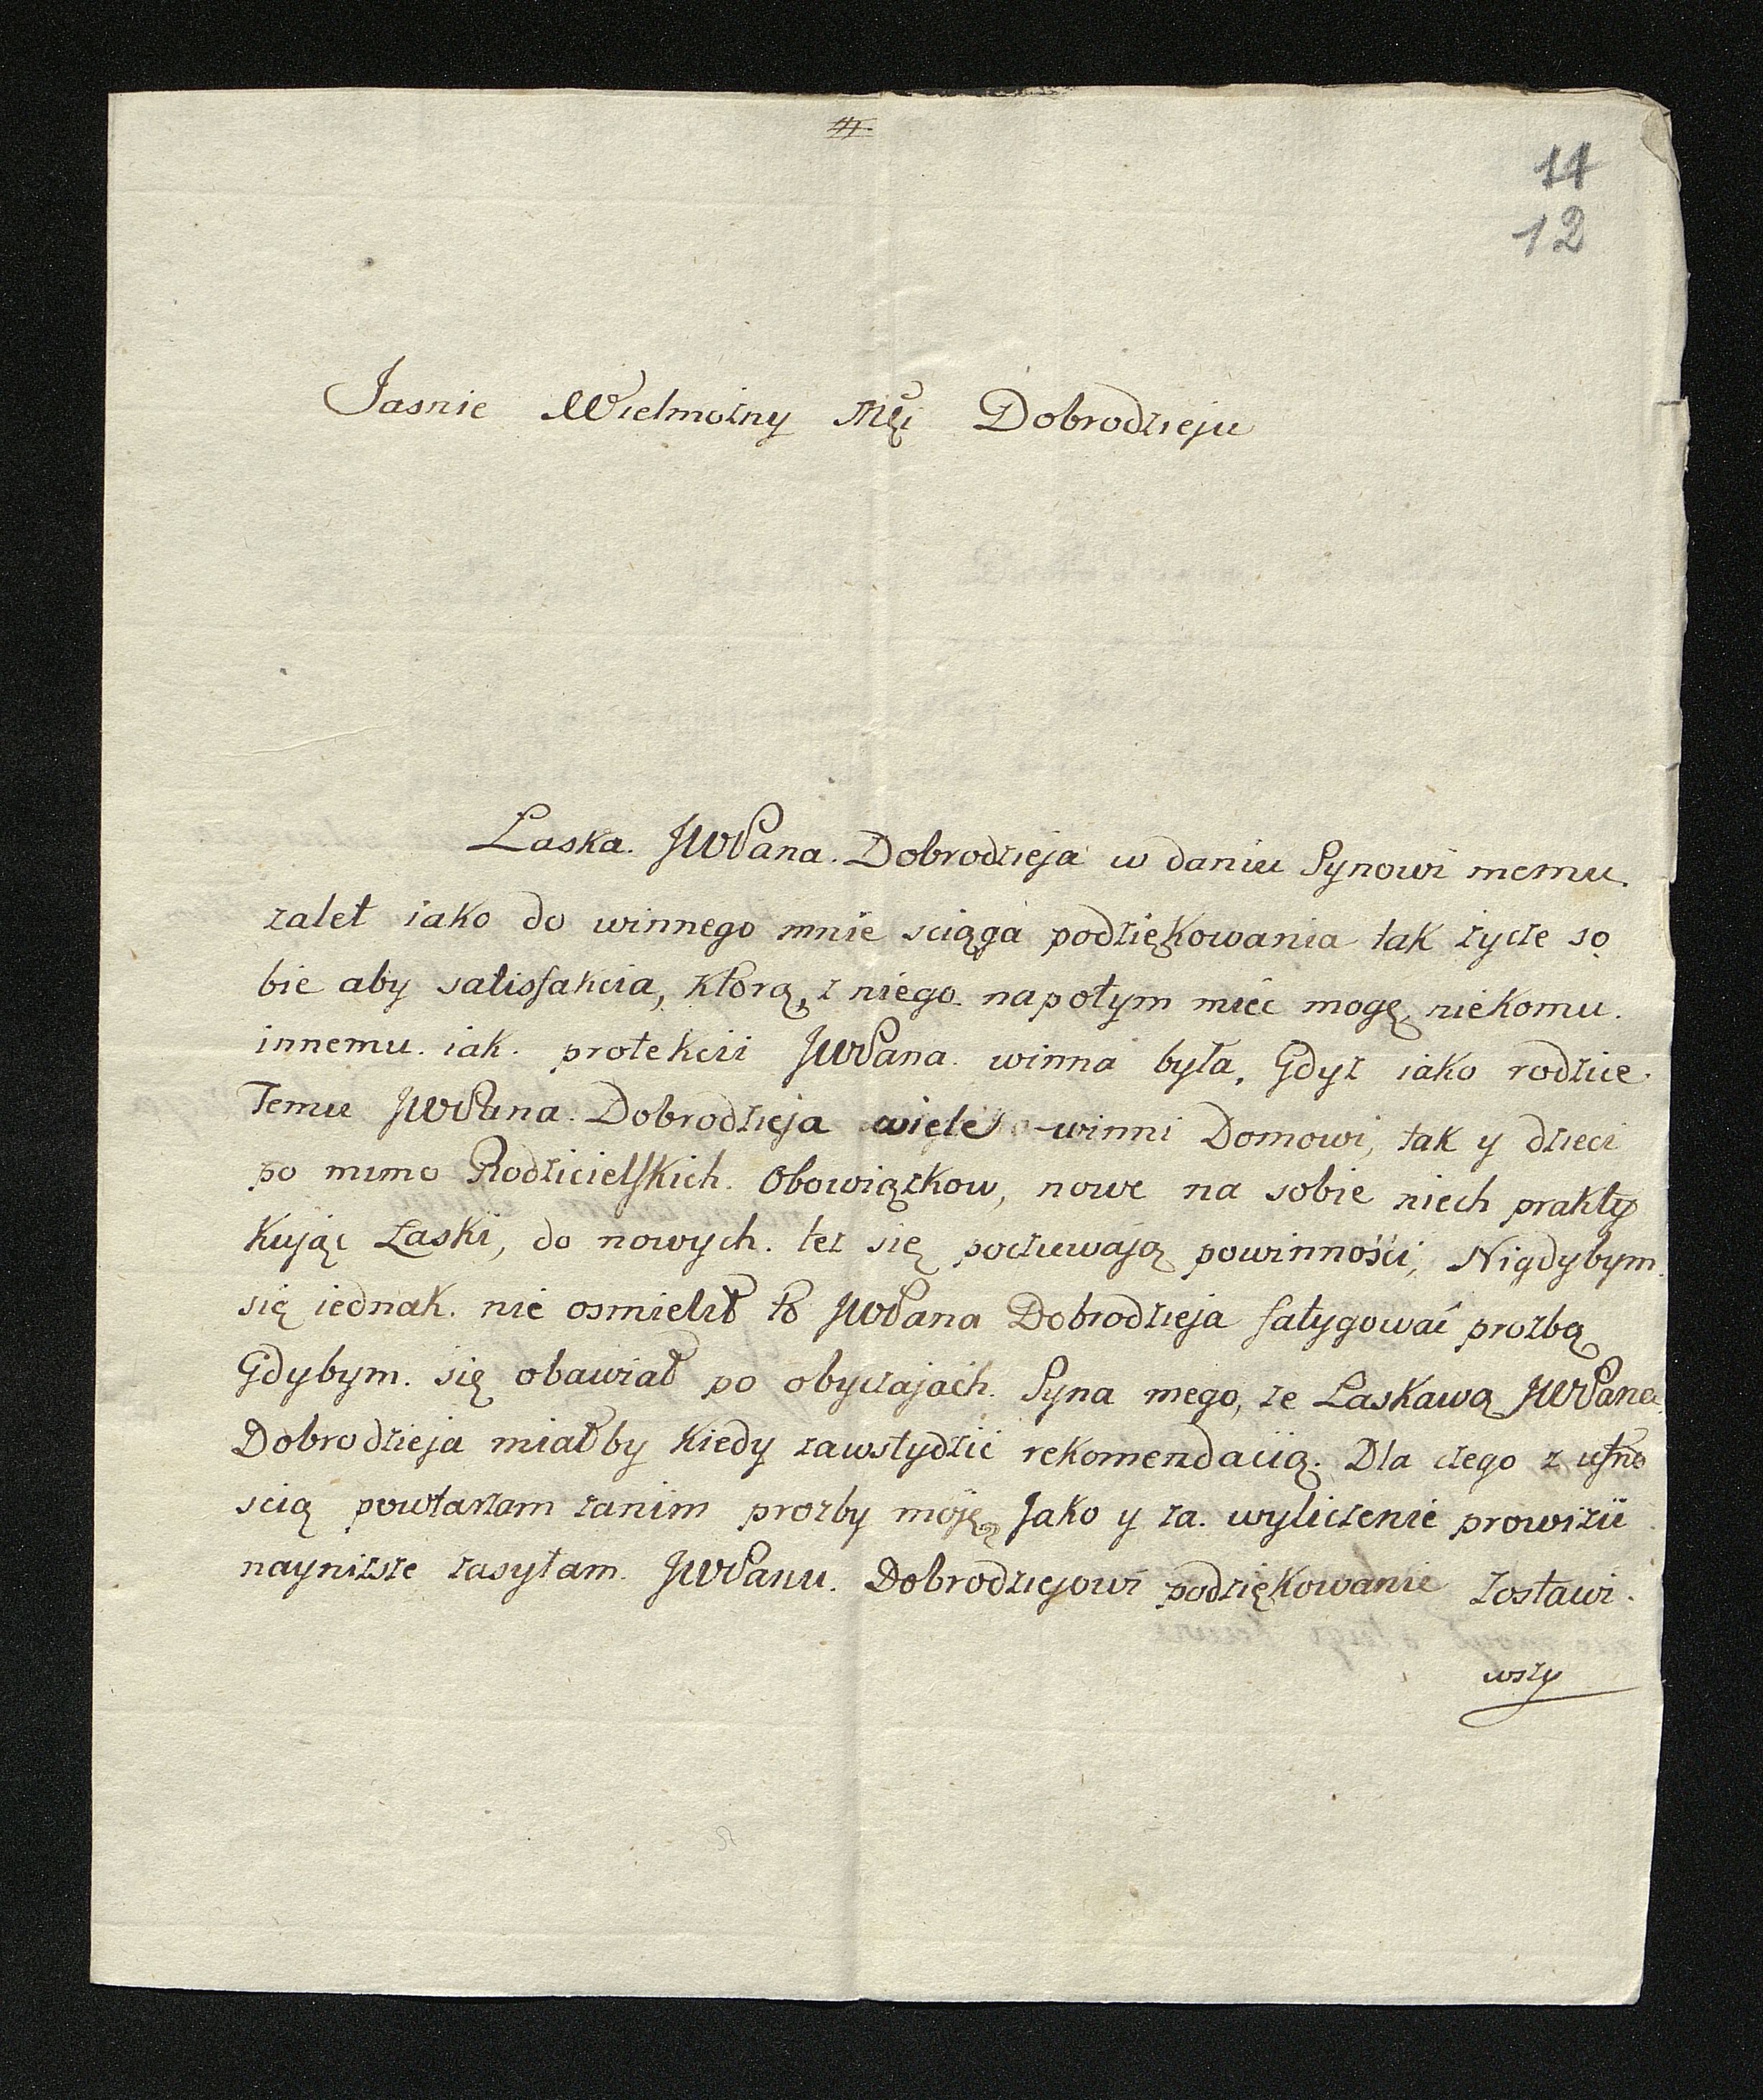 11
12
Jasnie Wielmożny Mśći Dobrodzieju
Łaska JWPana Dobrodzieja w daniu Synowi memu
zalet iako do winnego mnie sciąga podziękowania tak życze so
bie aby satisfakcia, ktorą z niego napotym mieć mogę niekomu
innemu iak protekcii JWPana winna była, Gdyż iako rodzice
Temu JWPana Dobrodzieja wiele winni Domowi, tak y dzieci
po mimo Rodzicielskich Obowiązkow, nowe na sobie niech prakty
kując Łaski, do nowych też się poczuwają powinności, Nigdybym
się iednak nie osmielił to JWPana Dobrodzieja fatygować prozbą
Gdybym się obawiał po obyczajach Syna mego, ze Łaskawą JWPana
Dobrodzieja miałby kiedy zawstydzić rekomendacią. Dla czego z ufno
scią powtarzam zanim prozby moję Jako y za wyliczenie prowizii
nayniższe zasyłam JWPanu Dobrodziejowi podziękowanie zostawi
wszy